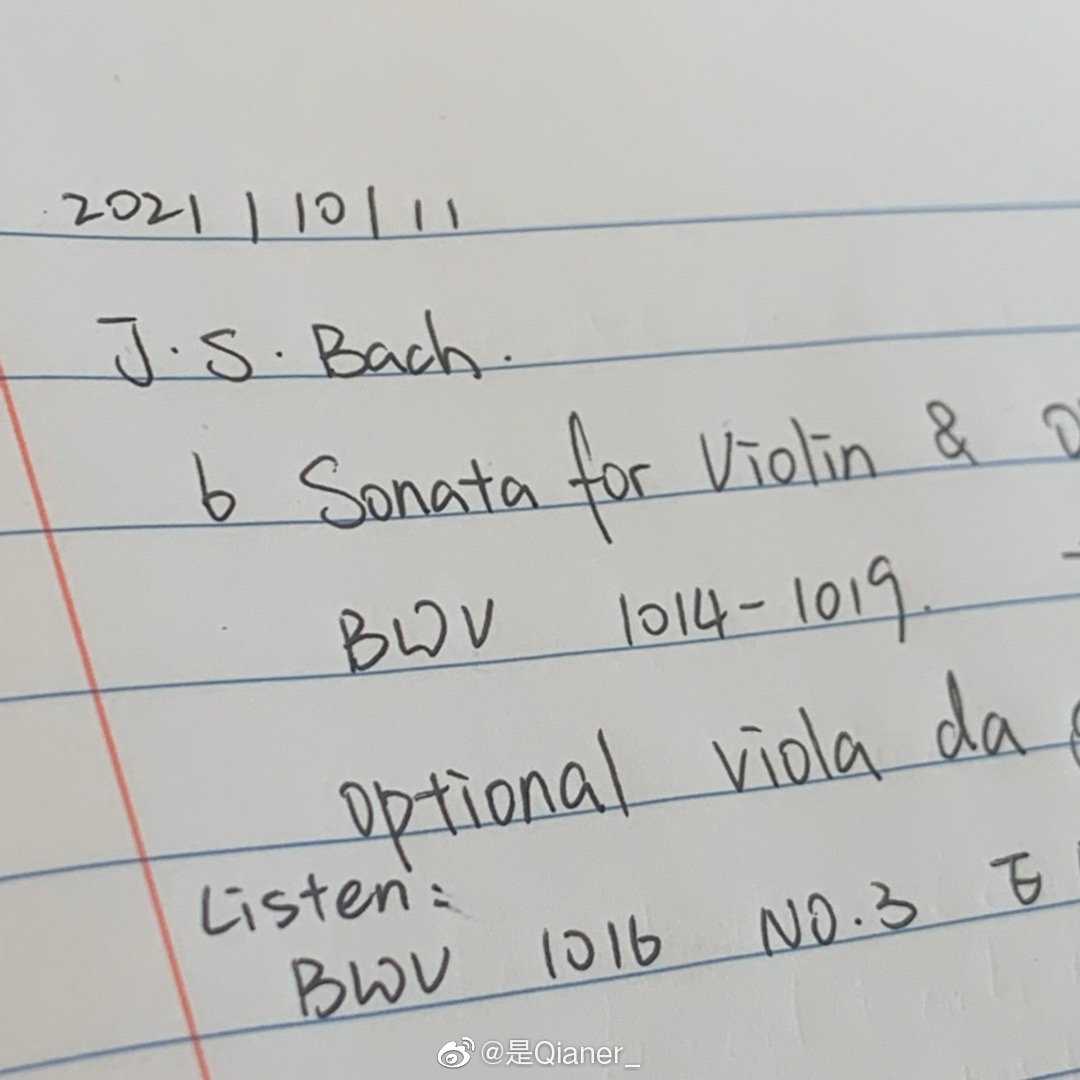 2021/10/11
J.S. Bach.
6 Sonata for Violin &
BWV 1014-1019.
optional viola da
Listen:
BWV 1016 NO.3 E
@是Qianer_